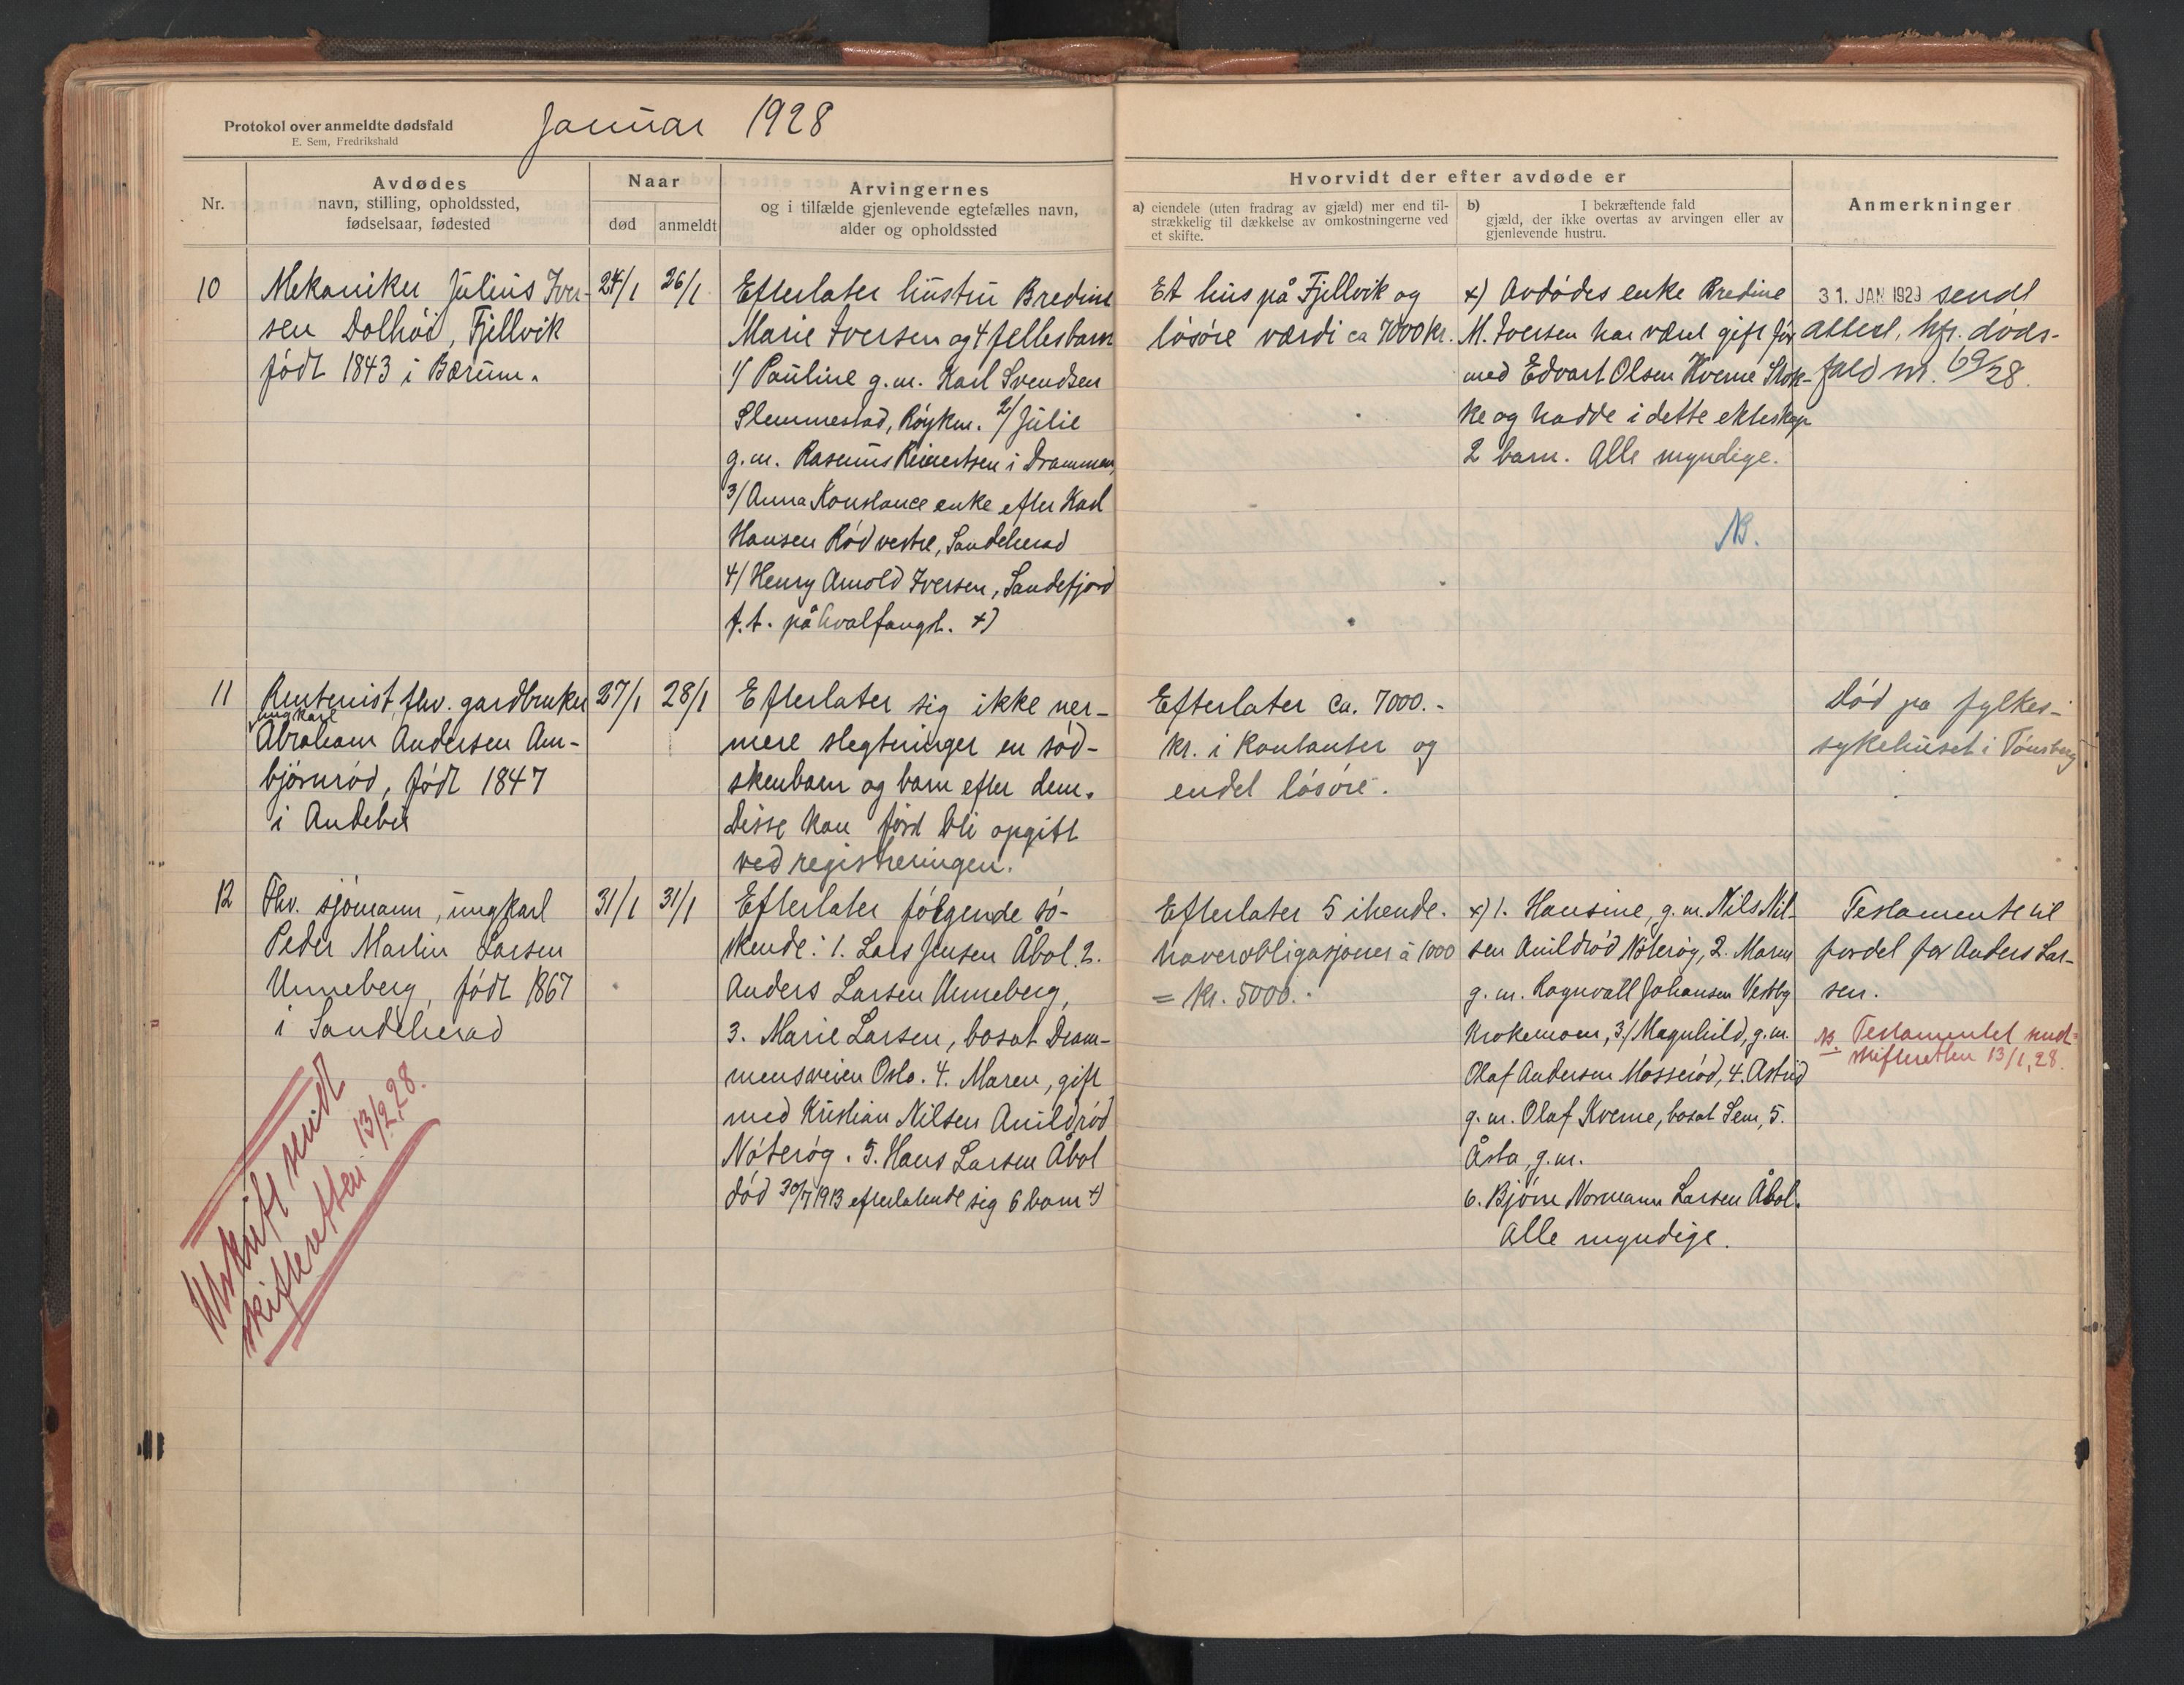 Protokol over anmeldte dødsfald
E. Sem, Fredrikshald
Januar 1928
Nr.
Avdødes
navn, stilling, opholdssted,
fødselsaar, fødested
Naar
død
anmeldt
Arvingernes
og i tilfælde gjenlevende egtefælles navn,
alder og opholdssted
Hvorvidt der efter avdøde er
a) eiendele (uten fradrag av gjæld) mer end til-
strækkelig til dækkelse av omkostningerne ved
et skifte.
b) I bekræftende fald
gjæld, der ikke overtas av arvingen eller av
gjenlevende hustru.
Anmerkninger
10
Mekaniker Julius Iver-
sen Dolhøi, Fjellvik
født 1843 i Bærum.
24/1
26/1
Efterlater hustru Bredine
Marie Iversen og 4 fellesbarn
1/ Pauline g.m. Karl Svendsen
Slemmestad, Røyken. 2/ Julie
g.m. Rasmus Reinertsen i Drammen,
3/ Anna Konstance enke efter Karl
Hansen Rød vestre, Sandeherad
4/ Henry Arnold Iversen, Sandefjord
f.t. på hvalfangst. x)
Et hus på Fjellvik og
løsøre værdi ca 7000 kr.
x) Avdødes enke Bredine
M. Iversen har været gift før
med Edvart Olsen Kverne Stok-
ke og hadde i dette ekteskap
2 barn. Alle myndige.
NB.
31. JAN 1929 sendt
attest. kfr. døds-
fald nr. 69/28.
11
Rentenist, fhv. gardbruker
ungkarl
Abraham Andersen Arn-
bjørnrød, født 1847
i Andebu
27/1
28/1
Efterlater sig ikke ner-
mere slegtninger en sød-
skenbarn og barn efter dem.
Disse kan først bli opgitt
ved registreringen.
Efterlater ca. 7000.-
kr. i kontanter og
endel løsøre.
Død pa fylkes-
sykehuset i Tønsberg
12
Fhv. sjømann, ungkarl
Peder Martin Larsen
Unneberg, født 1867
i Sandeherad
31/1
31/1
Efterlater følgende sø-
skende: 1. Lars Jensen Åbol. 2.
Anders Larsen Unneberg,
3. Marie Larsen, bosat Dram-
mensveien Oslo. 4. Maren, gift
med Kristian Nilsen Arnildrød
Nøterøg. 5. Hans Larsen Åbol
død 30/7 1913 efterlatende sig 6 barn x)
Efterlater 5 ihende-
haverobligasjoner à 1000
= kr. 5000.-
x) 1. Hansine, g.m. Nils Nil-
sen Anildrød Nøterøg, 2. Maren
g.m. Ragnvall Johansen Vestby
Krokemoen, 3/ Magnhild, g.m.
Olaf Andersen Mosserød, 4. Astrid
g.m. Olaf Kverne, bosat Sem, 5.
Åsta, g.m.
6. Bjørn Normann Larsen Åbol.
Alle myndige.
Testamente til
fordel for Anders Lar-
sen.
NB. Testamentet sendt
skifteretten 13/1, 28.
Utskrift sendt
skifteretten 13/2, 28.